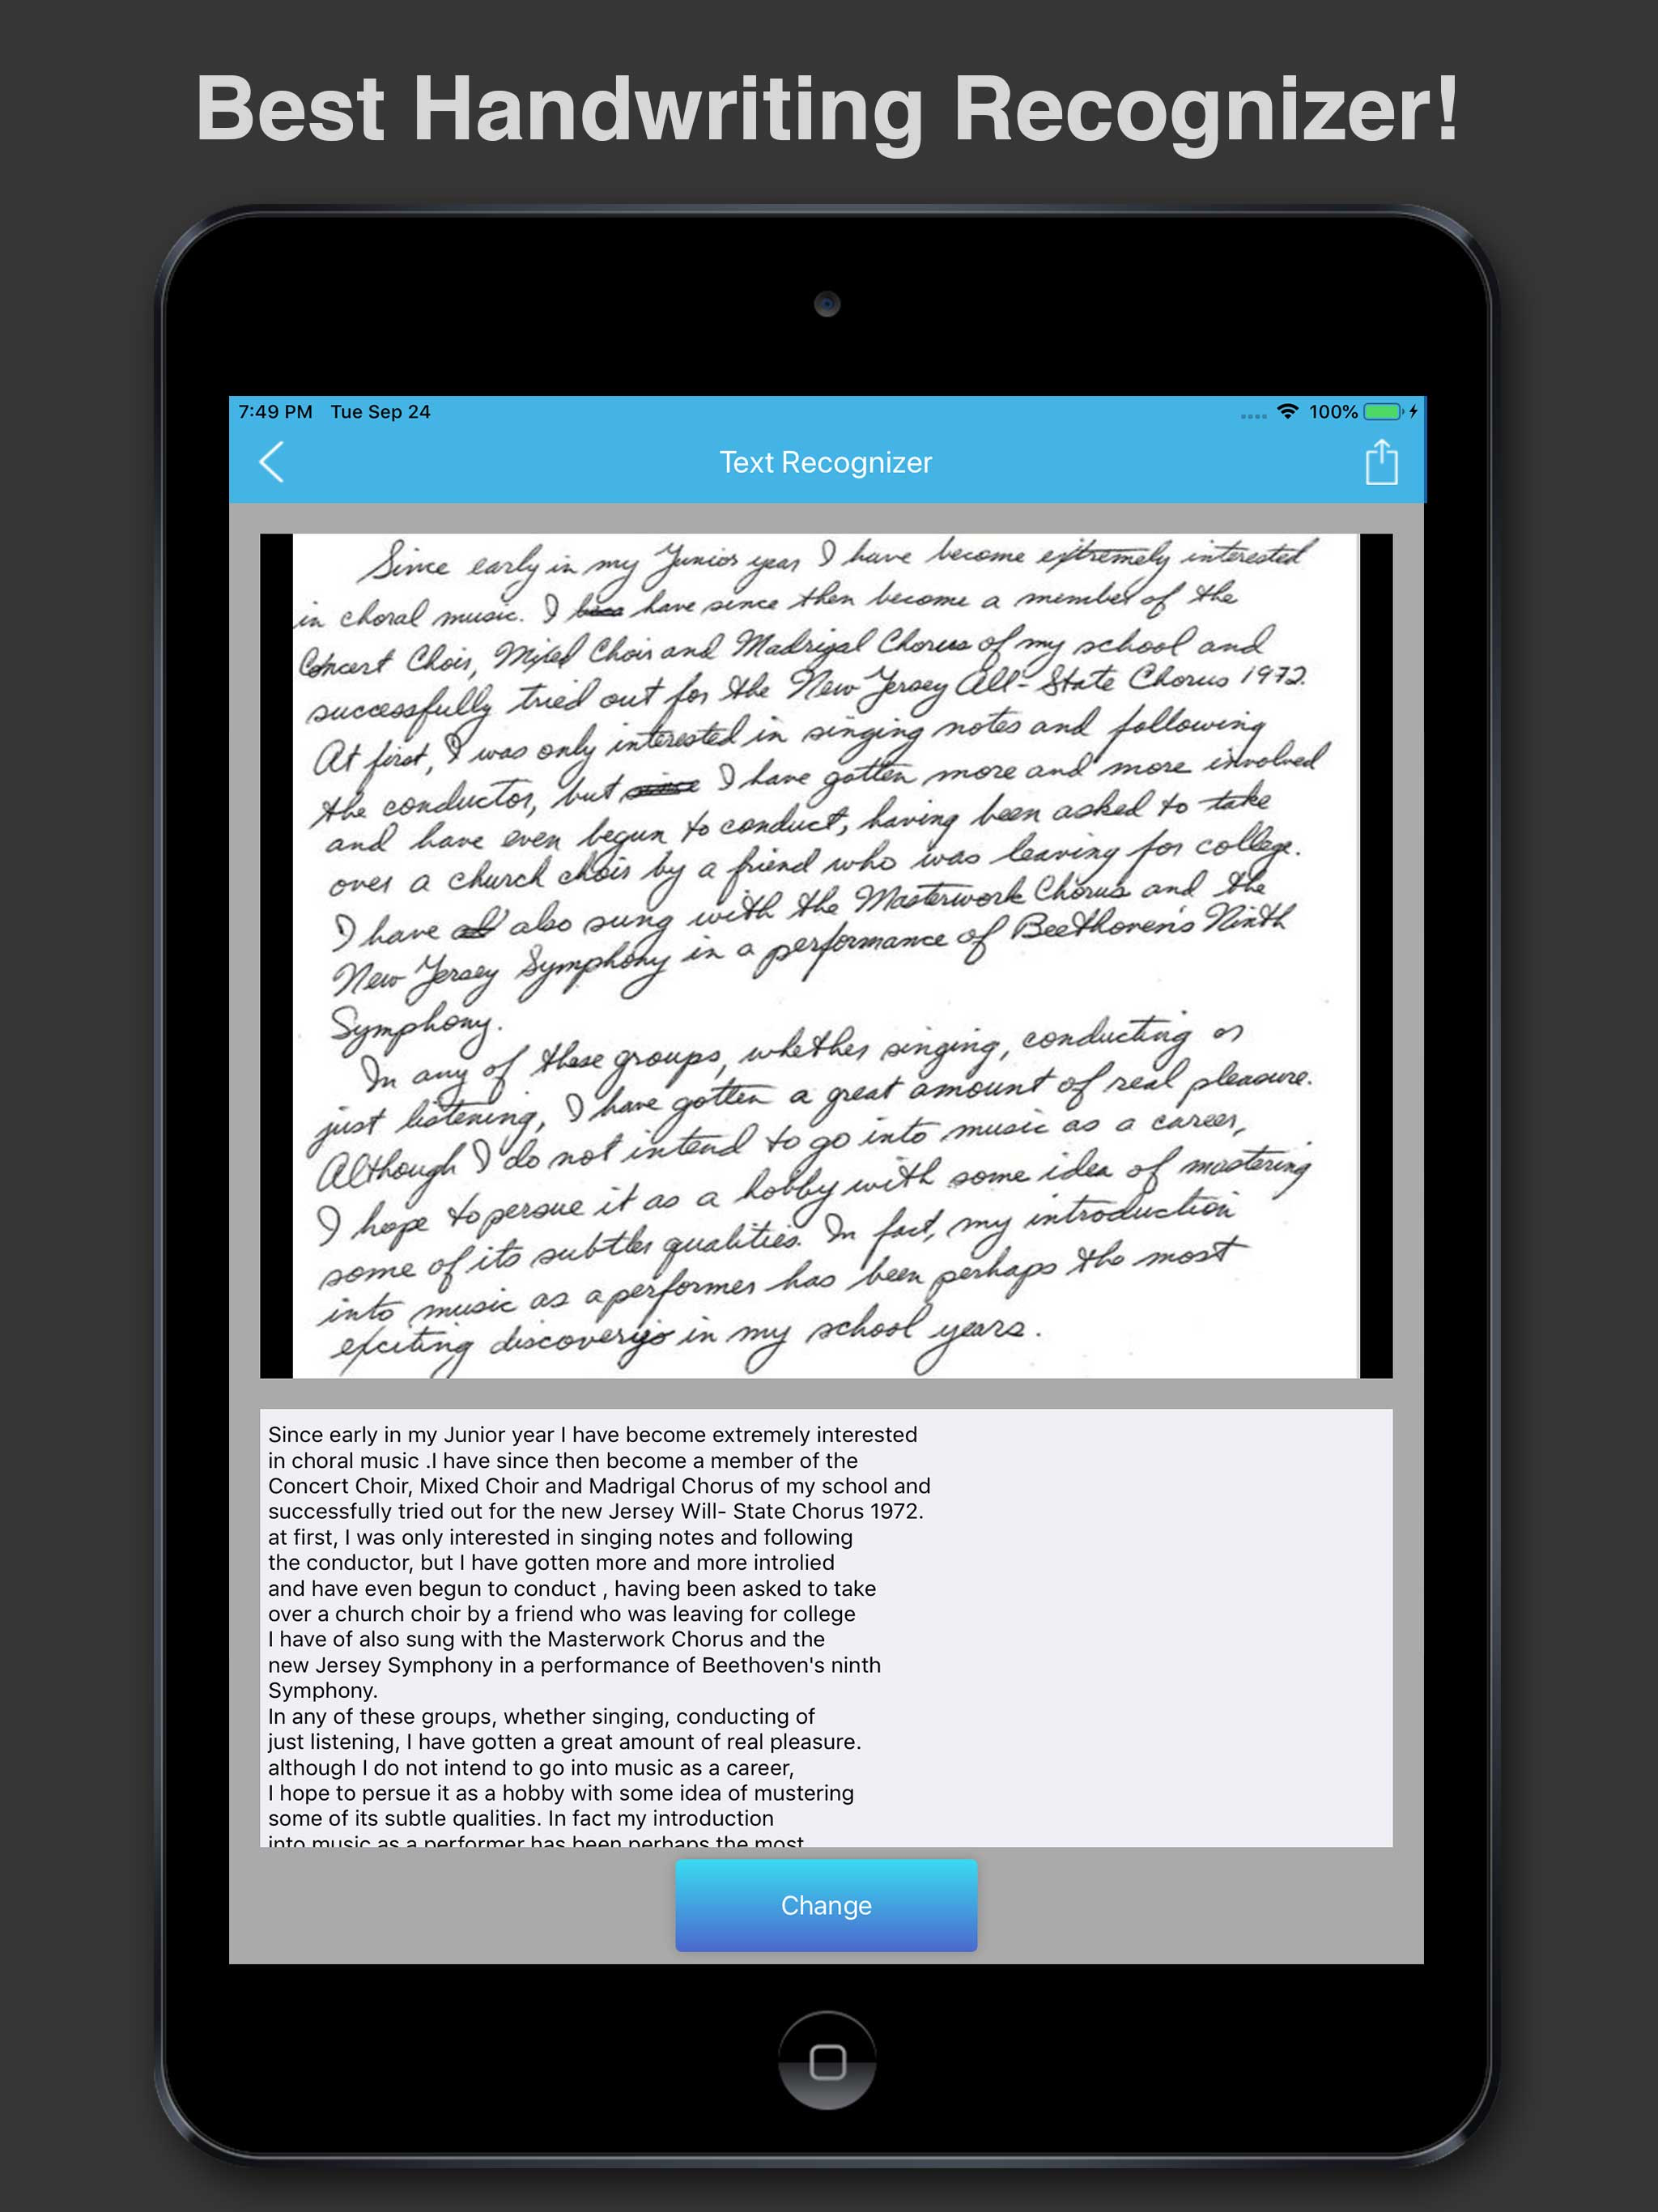 Best Handwriting Recognizer!
7:49 PM Tue Sep 24 100%
Text Recognizer
Since early in my Junior year I have become extremely interested
in choral music. I have since then become a member of the
Concert Choir, Mixed Choir and Madrigal Chorus of my school and
successfully tried out for the New Jersey All-State Chorus 1972.
At first, I was only interested in singing notes and following
the conductor, but since I have gotten more and more involved
and have even begun to conduct, having been asked to take
over a church choir by a friend who was leaving for college.
I have also sung with the Masterwork Chorus and the
New Jersey Symphony in a performance of Beethoven's Ninth
Symphony.
In any of these groups, whether singing, conducting or
just listening, I have gotten a great amount of real pleasure.
Although I do not intend to go into music as a career,
I hope to persue it as a hobby with some idea of mastering
some of its subtler qualities. In fact, my introduction
into music as a performer has been perhaps the most
exciting discovery in my school years.
Since early in my Junior year I have become extremely interested
in choral music .I have since then become a member of the
Concert Choir, Mixed Choir and Madrigal Chorus of my school and
successfully tried out for the new Jersey Will- State Chorus 1972.
at first, I was only interested in singing notes and following
the conductor, but I have gotten more and more introlied
and have even begun to conduct , having been asked to take
over a church choir by a friend who was leaving for college
I have of also sung with the Masterwork Chorus and the
new Jersey Symphony in a performance of Beethoven's ninth
Symphony.
In any of these groups, whether singing, conducting of
just listening, I have gotten a great amount of real pleasure.
although I do not intend to go into music as a career,
I hope to persue it as a hobby with some idea of mustering
some of its subtle qualities. In fact my introduction
into music as a performer has been perhaps the most
Change